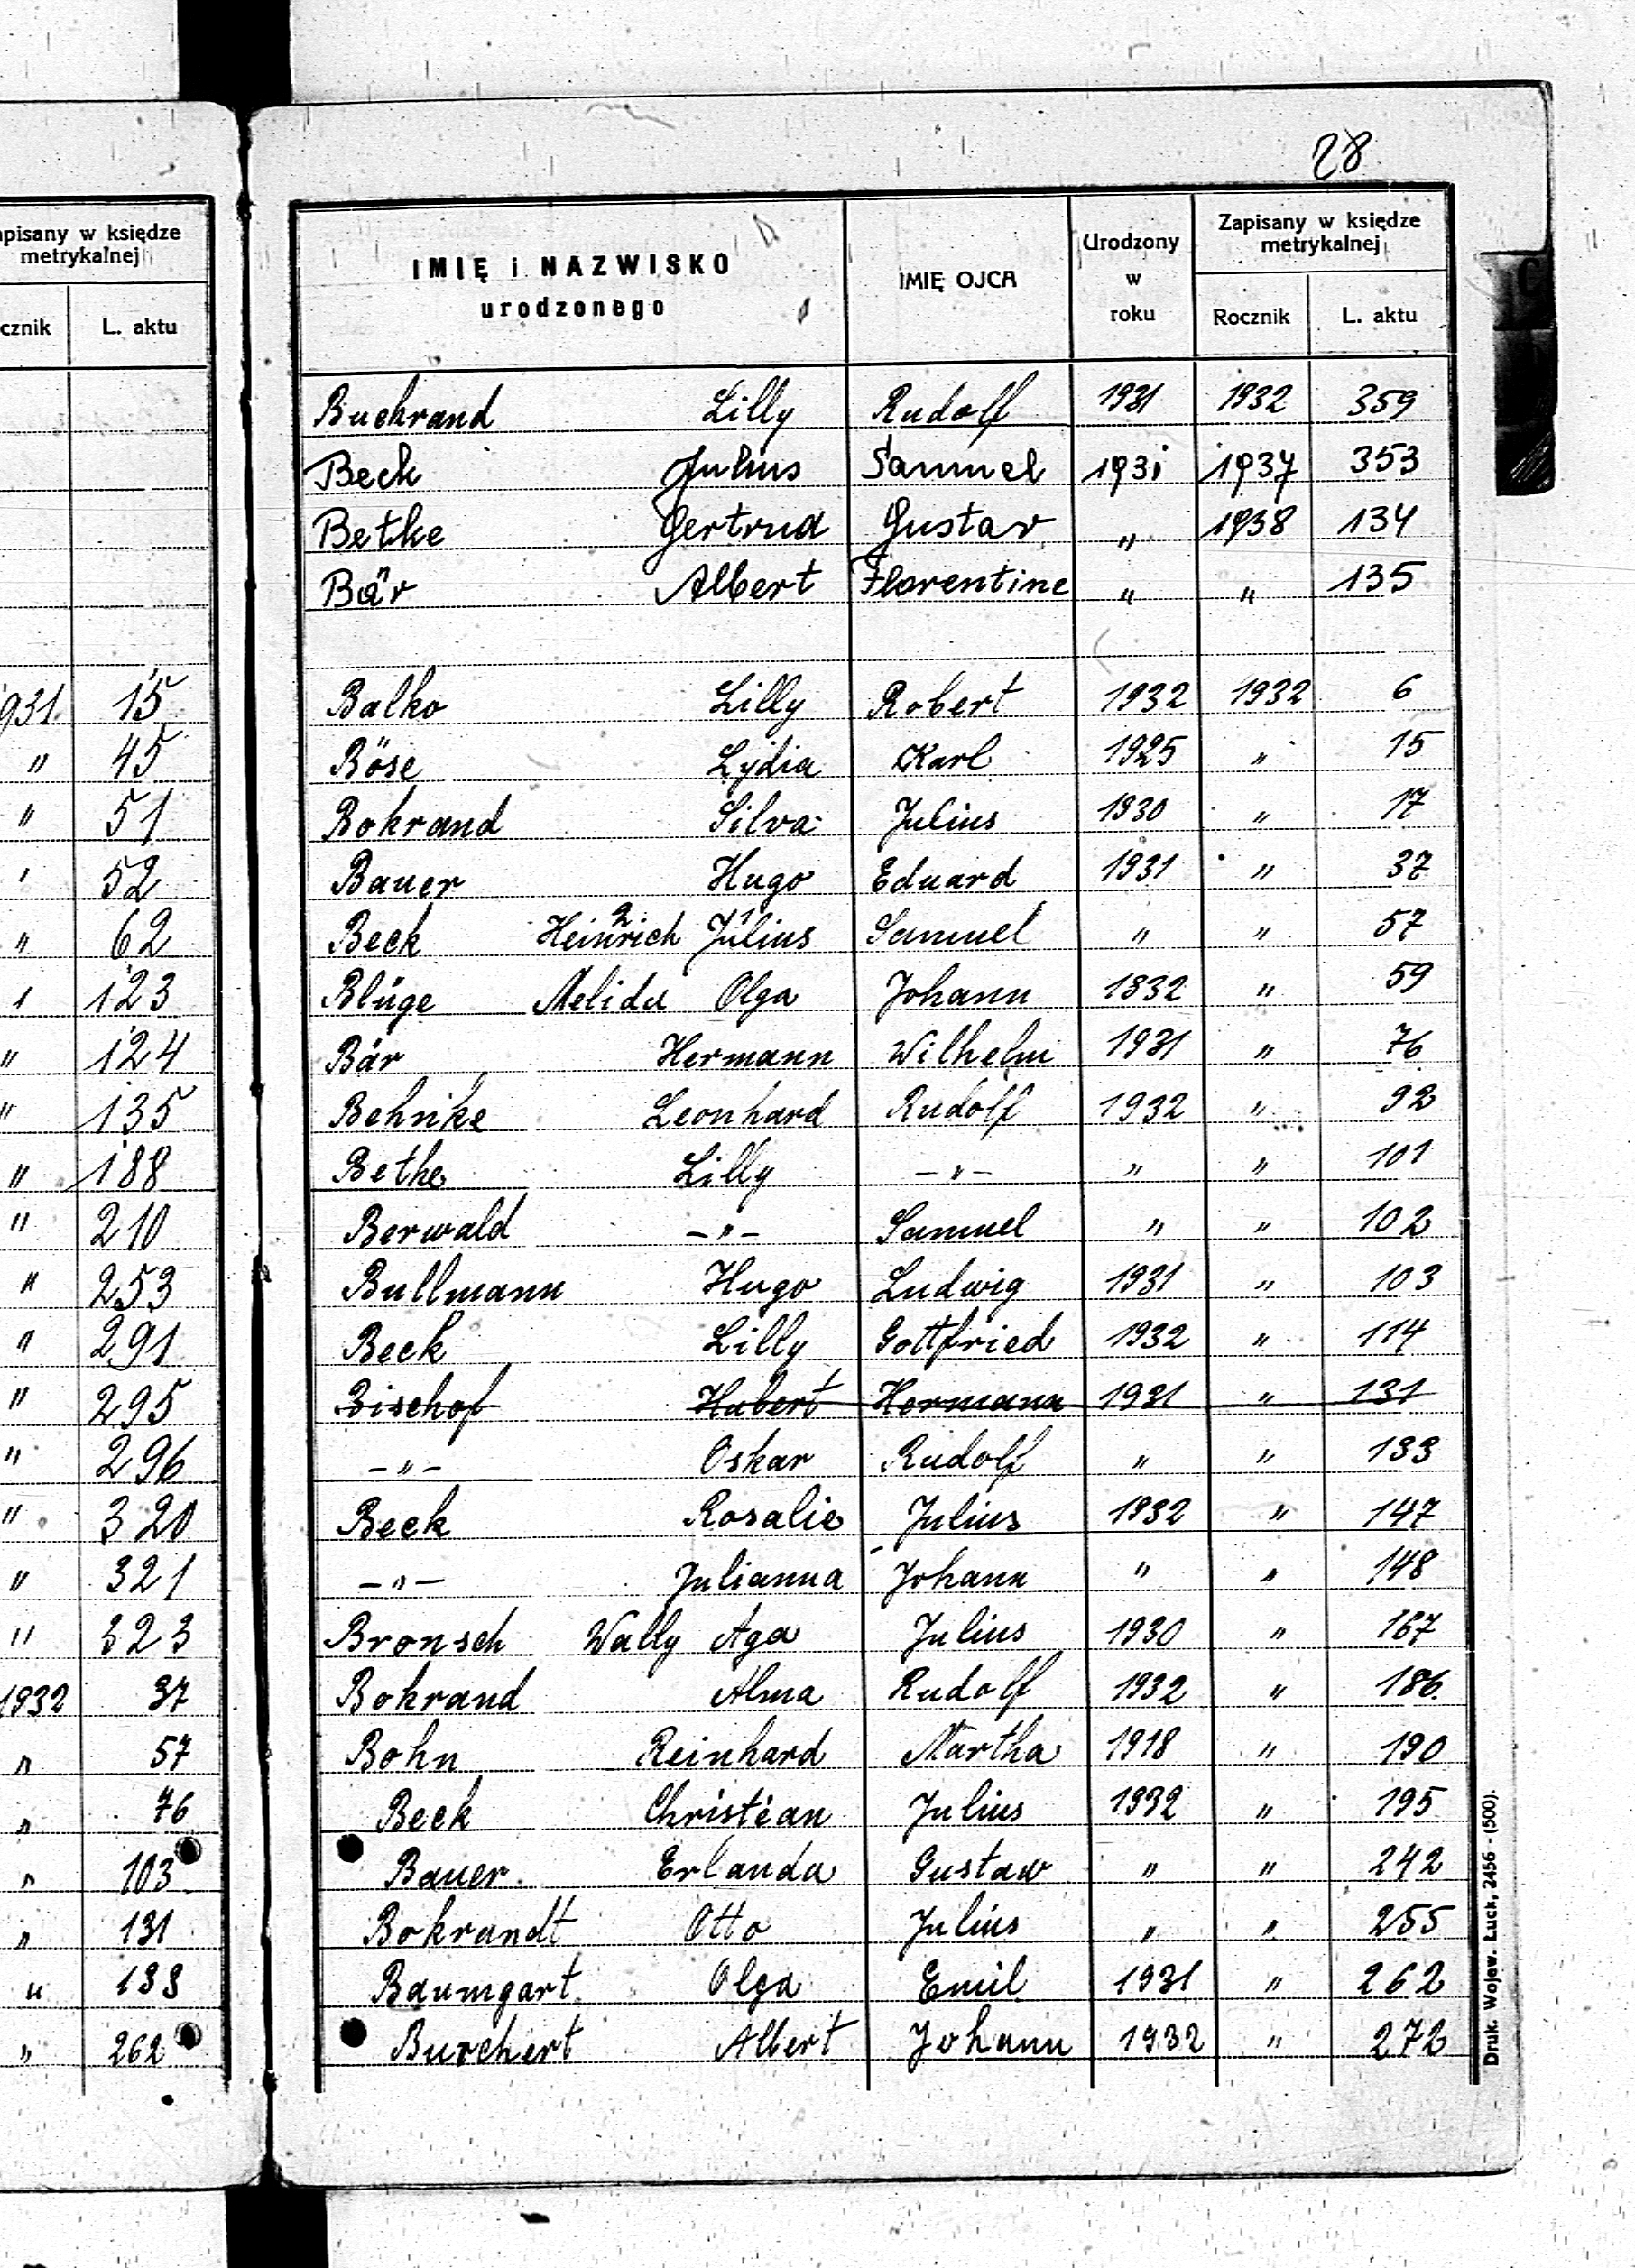 apisany w księdze
metrykalnej
cznik L. aktu
931. 15
" 45
" 51
' 52
" 62
" 123
" 124
" 135
" 188
" 210
" 253
" 291
" 295
" 296
" 320
" 321
" 323
1932 37
" 57
" 76
" 103
" 131
" 133
" 262
28
IMIĘ i NAZWISKO
urodzonego
IMIĘ OJCA
Urodzony
w
roku
Zapisany w księdze
metrykalnej
Rocznik L. aktu
Buchrand Lilly Rudolf 1931 1932 359
Beck Julius Samuel 1931 1937 353
Betke Gertrud Gustav " 1938 134
Bär Albert Florentine " " 135
Balko Lilly Robert 1932 1932 6
Böse Lydia Karl 1925 " 15
Bokrand Silva Julius 1930 " 17
Bauer Hugo Eduard 1931 " 37
2 1
Beck Heinrich Julius Samuel " " 57
Blüge Melida Olga Johann 1832 " 59
Bär Hermann Wilhelm 1931 " 76
Behnke Leonhard Rudolf 1932 " 92
Bethe Lilly -"- " " 101
Berwald -"- Samuel " " 102
Bullmann Hugo Ludwig 1931 " 103
Beck Lilly Gottfried 1932 " 114
Bischof Hubert Hermann 1931 " 131
-"- Oskar Rudolf " " 133
Beck Rosalie Julius 1932 " 147
-"- Julianna Johann " " 148
Bronsch Wally Aga Julius 1930 " 167
Bokrand Alma Rudolf 1932 " 186.
Bohn Reinhard Martha 1918 " 190
Beck Christian Julius 1932 " 195
Bauer Erlanda Gustaw " " 242
Bokrandt Otto Julius " " 255
Baumgart Olga Emil 1931 " 262
Burchert Albert Johann 1932 " 272
Druk. Wojew. Łuck, 2456 - (500).